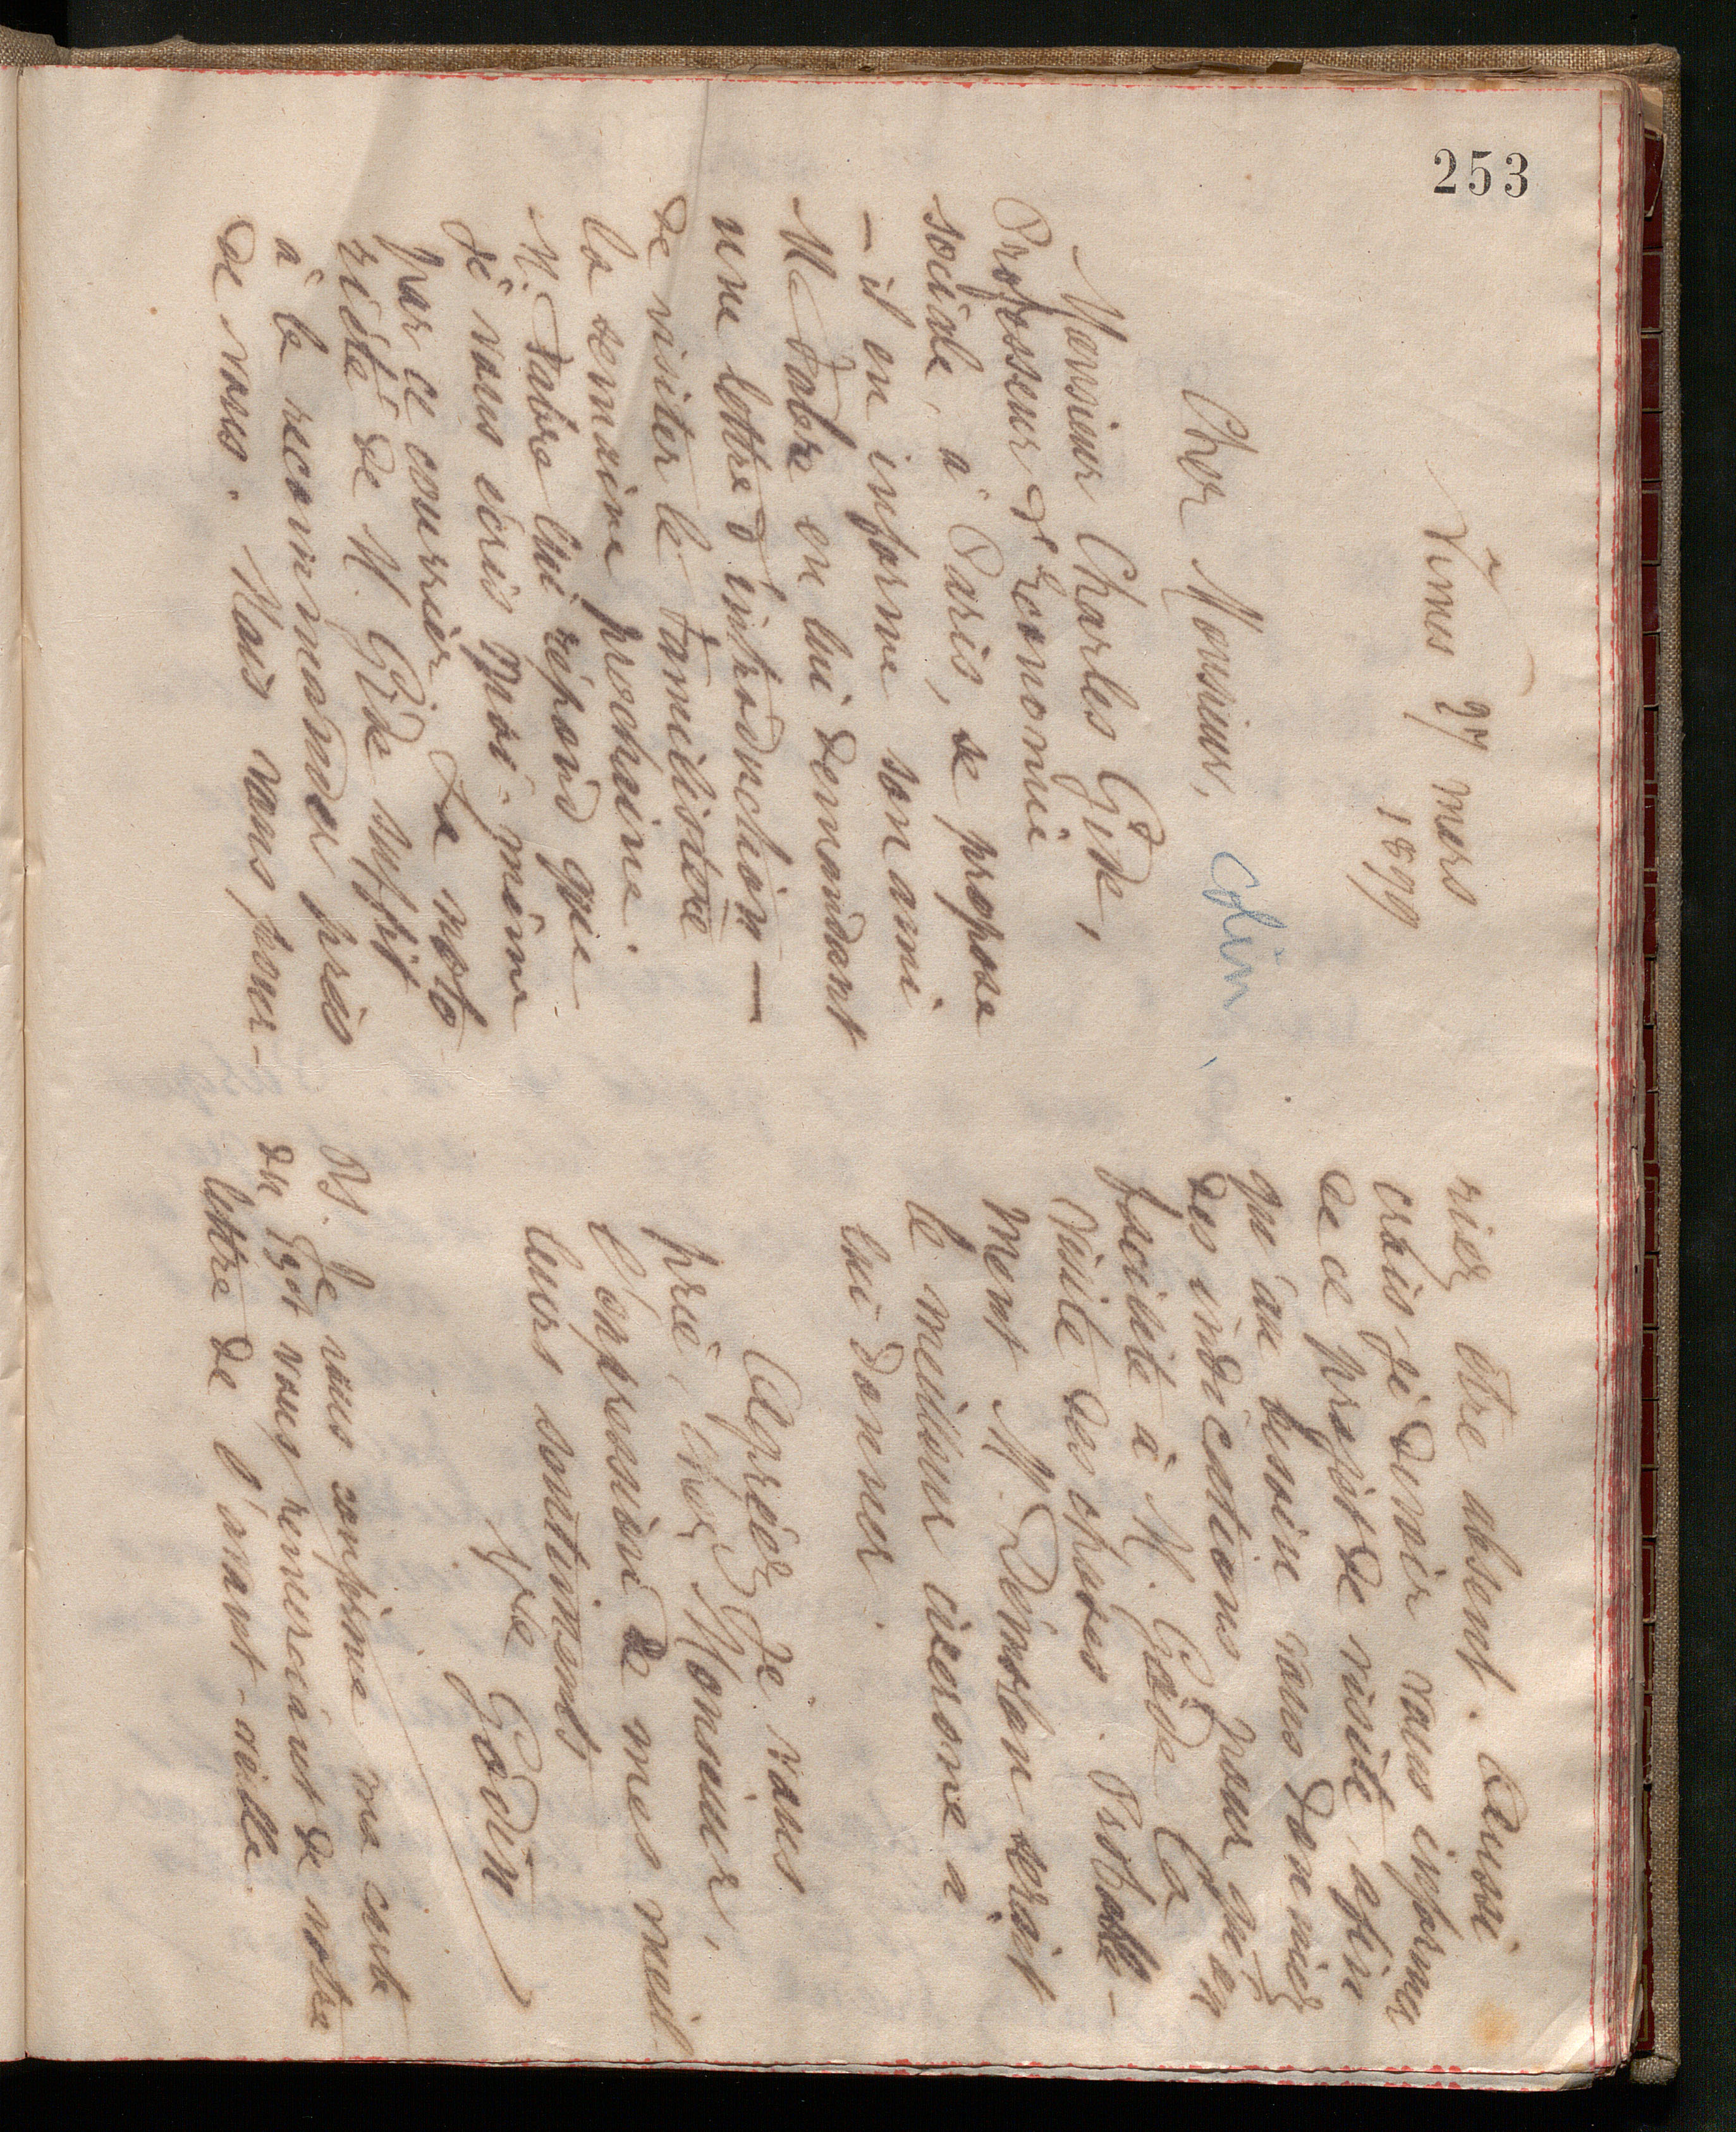 253
Nîmes 27 mars
1899
Cher Monsieur, Colin
Monsieur Charles Gide,
Professeur d'Economie
sociale, à Paris, se propose
— il en informe son ami
M. de Fabre en lui demandant
une lettre d'introduction —
de visiter le Familistère
la semaine prochaine.
M. Fabre lui répond que
je vous écris moi-même
par ce courrier. La noto
riété de M. Gide suffit
à le recommander près
de vous. Mais vous pour-
riez être absent. Aussi
crois-je devoir vous informer
de ce projet de visite, afin
qu'au besoin vous donniez
des indications pour qu'on
facilite à M. Gide la
visite des choses. Probable-
ment M. Bernardot serait
le meilleur cicerone à
lui donner.
Agréez je vous
prie, cher Monsieur,
l'expression de mes meil
leurs sentiments
Vve Godin
PS. Je vous confirme ma carte
du 29 et vous remerciant de votre
lettre de l'avant-veille.